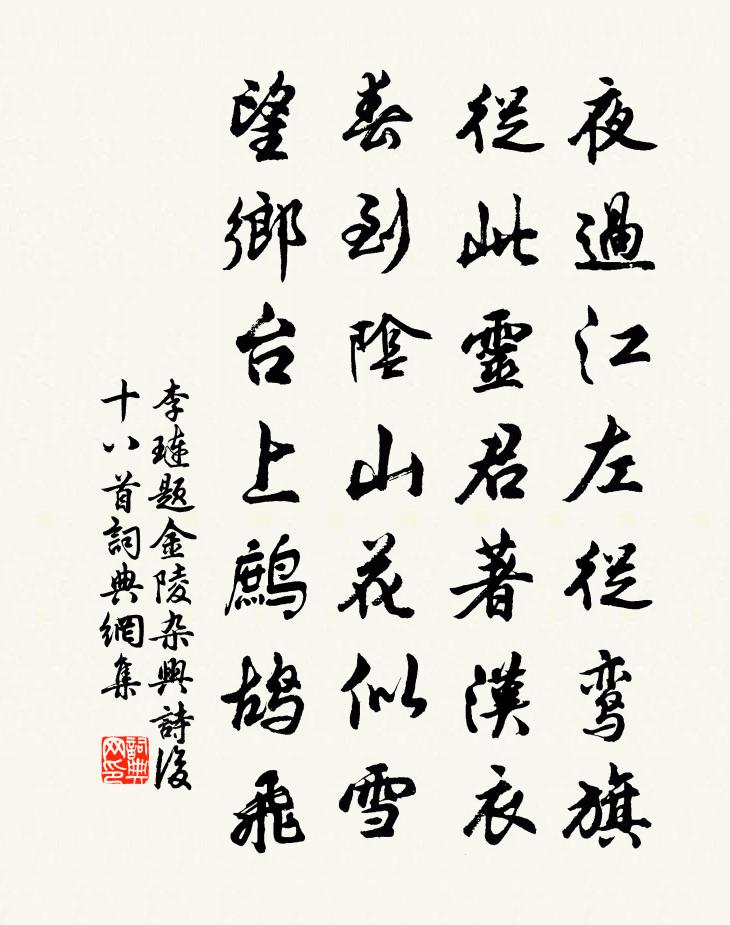 夜過江左從鸾旗
從此靈君著漢衣
春到陰山花似雪
望鄉台上鷓鴣飛
李璉題金陵杂興詩後
十八首詞典網集
詞典網印